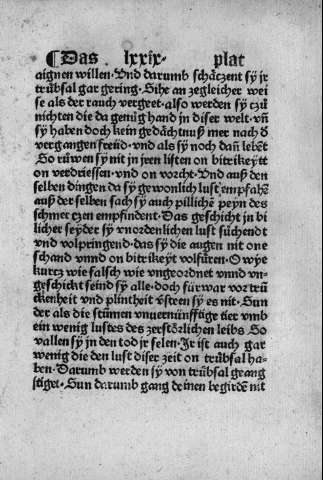 ¶Das lxxix plat
aignen willen· Vnd darumb schäczent sy jr
trübsal gar gering· Sihe an zegleicher wei
se als der rauch vergeet· also werden sy czů
nichten die da genůg hand in diser welt· vñ
sy haben doch kein gedächtnuß mer nach ď
vergangen freüd· vnd als sy noch dañ lebēt
So růwen sy nit in jren listen on bitrikeytt
on verdriessen· vnd on vorcht· Vnd auß den
selben dingen da sy gewonlich lust empfahē
auß der selben sach sy auch pillichen peyn des
schmerczen empfindent· Das geschicht jn bi
licher seyder sy vnordenlichen lust sůchend
vnd volpringend· das sy die augen nit one
schand vnnd on bitrikeyt volfüren· O wye
kurcz wie falsch wie vngeordnet vnnd vn-
geschickt seind sy alle· doch fürwar vor trů
ckenheit vnd plintheit v̄steen sy es nit· Sun
der als die stummen vnuernünfftige tier vmb
ein wenig lustes des zerstörlichen leibs So
vallen sy jn den tod jr selen· Ir ist auch gar
wenig die den lust diser zeit on trübsal ha-
ben· Darumb werden sy von trübsal geang
stiget· Sun darumb gang deinen begirden nit